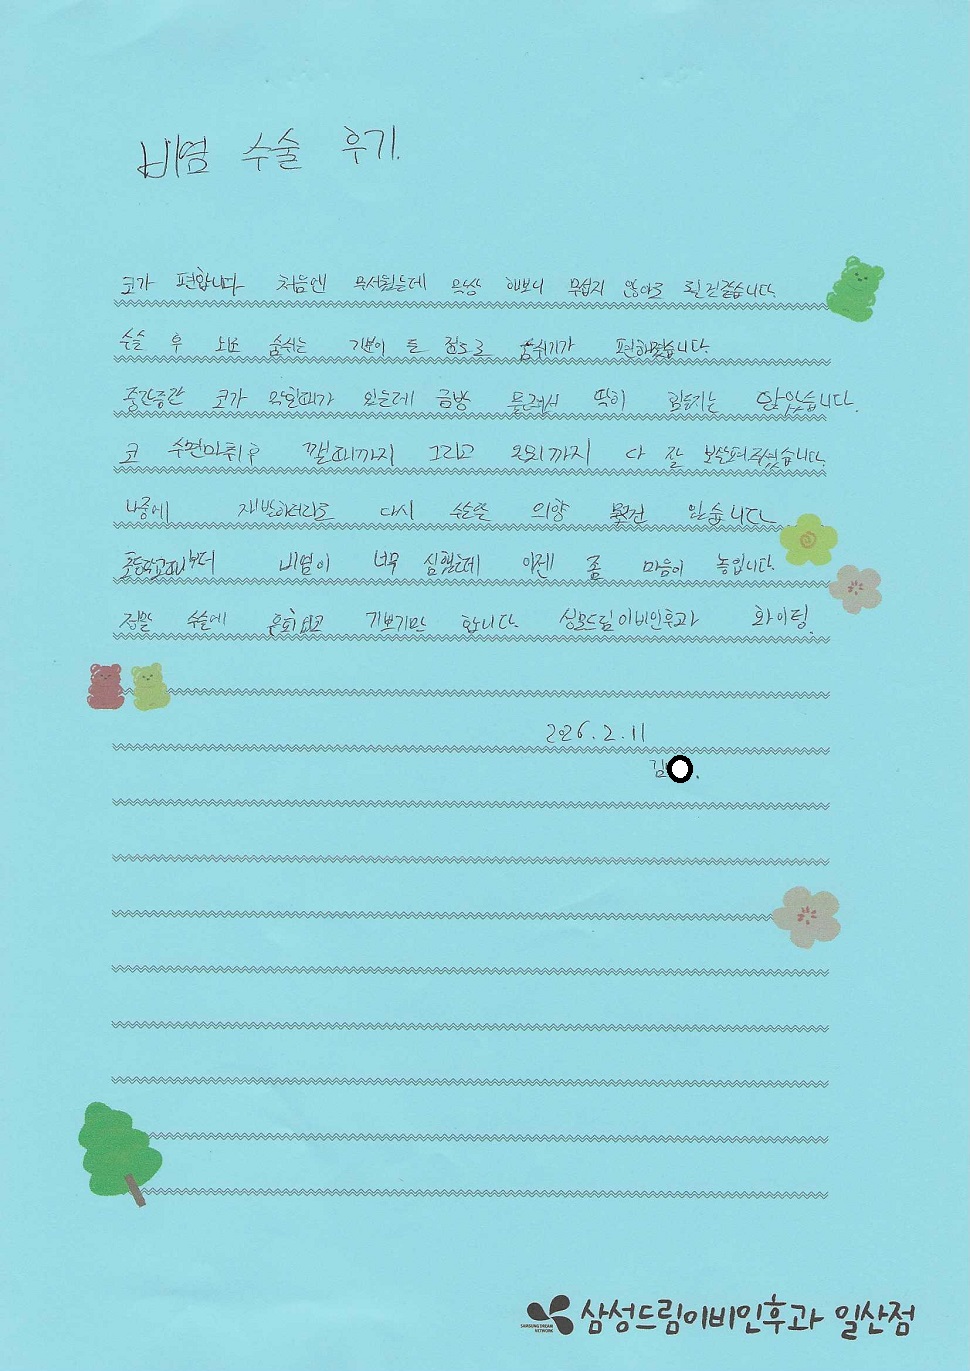 비염 수술 후기.
코가 편합니다 처음엔 무서웠는데 막상 해보니 무섭지 않아도 될것같습니다.
수술 후 뇌로 숨쉬는 기분이 들 정도로 숨쉬기가 편해졌습니다.
중간중간 코가 막힐때가 있는데 금방 뚫려서 딱히 힘들지는 않았습니다.
코 수면마취후 깰때까지 그리고 오기까지 다 잘 보살펴주셨습니다.
나중에 재발하더라도 다시 수술할 의향 무조건 있습니다
초등학교때부터 비염이 너무 심했는데 이젠 좀 마음이 놓입니다.
정말 수술에 후회없고 기쁘기만 합니다. 삼성드림이비인후과 화이팅.
2026.2.11
김
삼성드림이비인후과 일산점
SAMSUNG DREAM
NETWORK